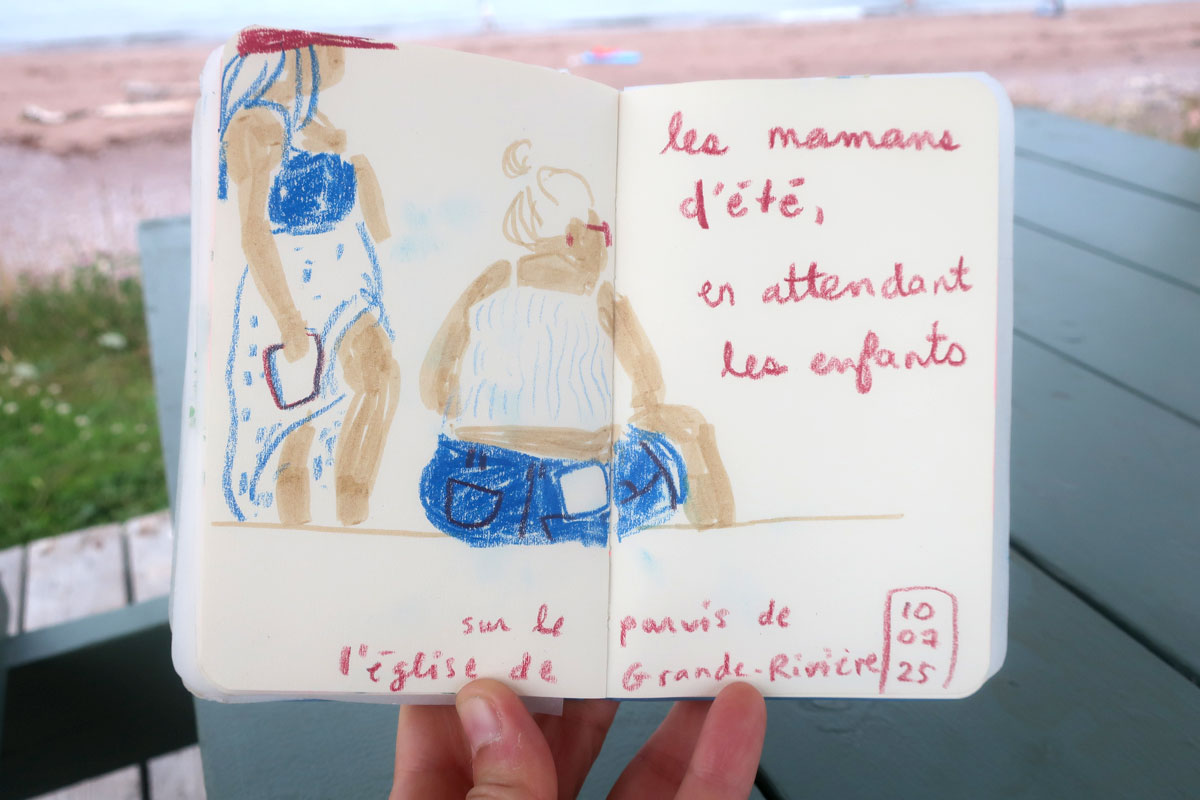 les mamans
d'été,
en attendant
les enfants
sur le parvis de
l'église de Grande-Rivière
10
07
25